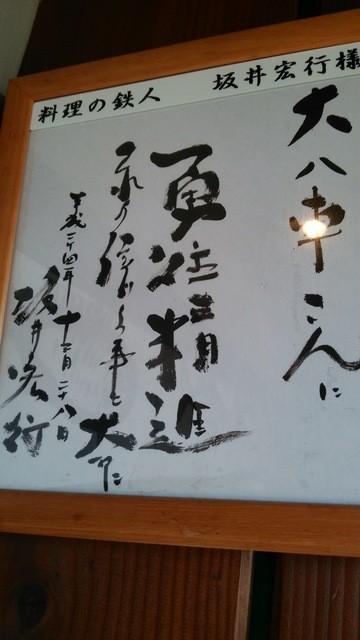 料理の鉄人 坂井宏行様
大八車さんに
勇往精進
大切に
平成二十四年十二月二十八日
坂井宏行